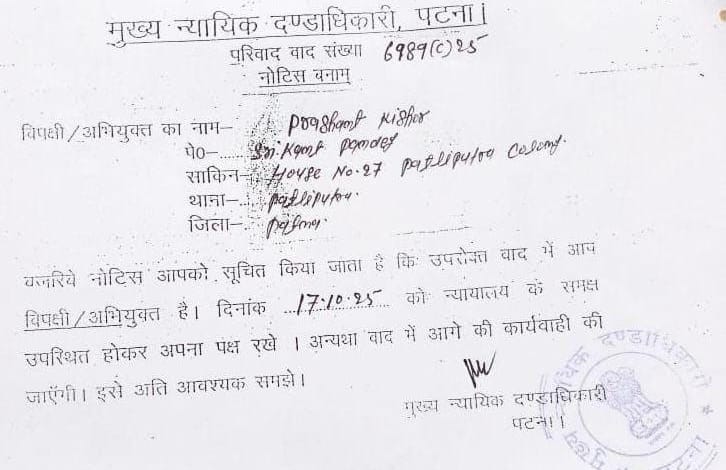 मुख्य न्यायिक दण्डाधिकारी, पटना।
परिवाद वाद संख्या 6989(C)25
नोटिस बनाम्
विपक्षी/अभियुक्त का नाम– Prashant Kishor
पे०–...... Sri. Kant Pandey
साकिन– House No. 27 Patliputra Colony.
थाना–... Patliputra.
जिला–... Patna.
वजरिये नोटिस आपको सूचित किया जाता है कि उपरोक्त वाद में आप
विपक्षी/अभियुक्त है। दिनांक ...17.10.25 को न्यायालय के समक्ष
उपस्थित होकर अपना पंक्ष रखे । अन्यथा वाद में आगे की कार्यवाही की
जाएँगी। इसे अति आवश्यक समझे।
मुख्य न्यायिक दण्डाधिकारी
पटना।।
मुख्य न्यायिक दण्डाधिकारी * पटना